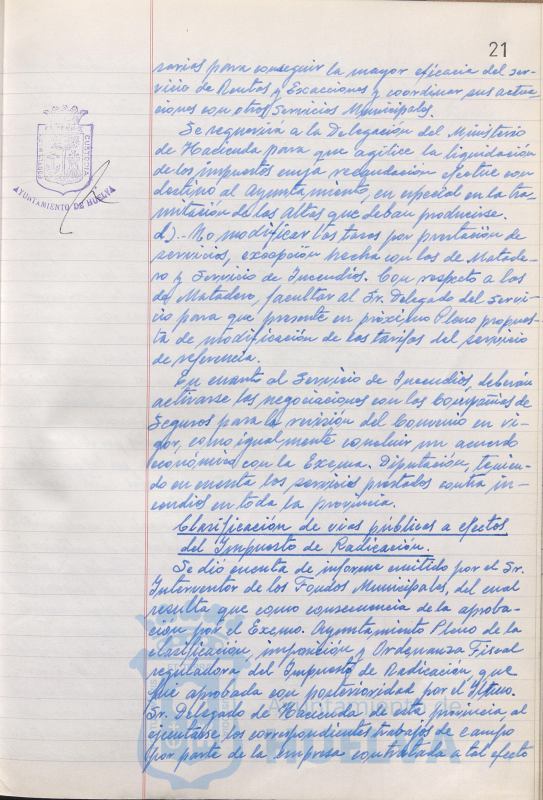 21
sarias para conseguir la mayor eficacia del ser-
vicio de Rentas y Exacciones y coordinar sus actua-
ciones con otros Servicios Municipales.
Se requerira a la Delegación del Ministerio
de Hacienda para que agilice la liquidación
de los impuestos cuya recaudación efectue con
destino al Ayuntamiento, en especial en la tra-
mitación de las altas que deban producirse.
d).- No modificar las tasas por prestación de
servicios, excepción hecha con los de Matade-
ro y Servicio de Incendios. Con respecto a los
de Matadero, facultar al Sr. Delegado del Servi-
cio para que presente en próximo Pleno propues-
ta de modificación de las tarifas del servicio
de referencia.
En cuanto al Servicio de Incendios, deberán
activarse las negociaciones con las Compañias de
Seguros para la revisión del Convenio en vi-
gor, como igualmente concluir un acuerdo
económico con la Excma. Diputación, tenien-
do en cuenta los servicios prestados contra in-
cendios en toda la provincia.
Clasificación de vias públicas a efectos
del Impuesto de Radicación.
Se dió cuenta de informe emitido por el Sr.
Interventor de los Fondos Municipales, del cual
resulta que como consecuencia de la aproba-
ción por el Excmo. Ayuntamiento Pleno de la
clasificación, imposición y Ordenanza Fiscal
reguladora del Impuesto de Radicación, que
fue aprobada con posterioridad por el Iltmo.
Sr. Delegado de Hacienda de esta provincia, al
ejecutarse los correspondientes trabajos de campo
por parte de la empresa contratada a tal efecto
AYUNTAMIENTO DE HUELVA
CUSTODIA
Ayuntamiento de
HUELVA